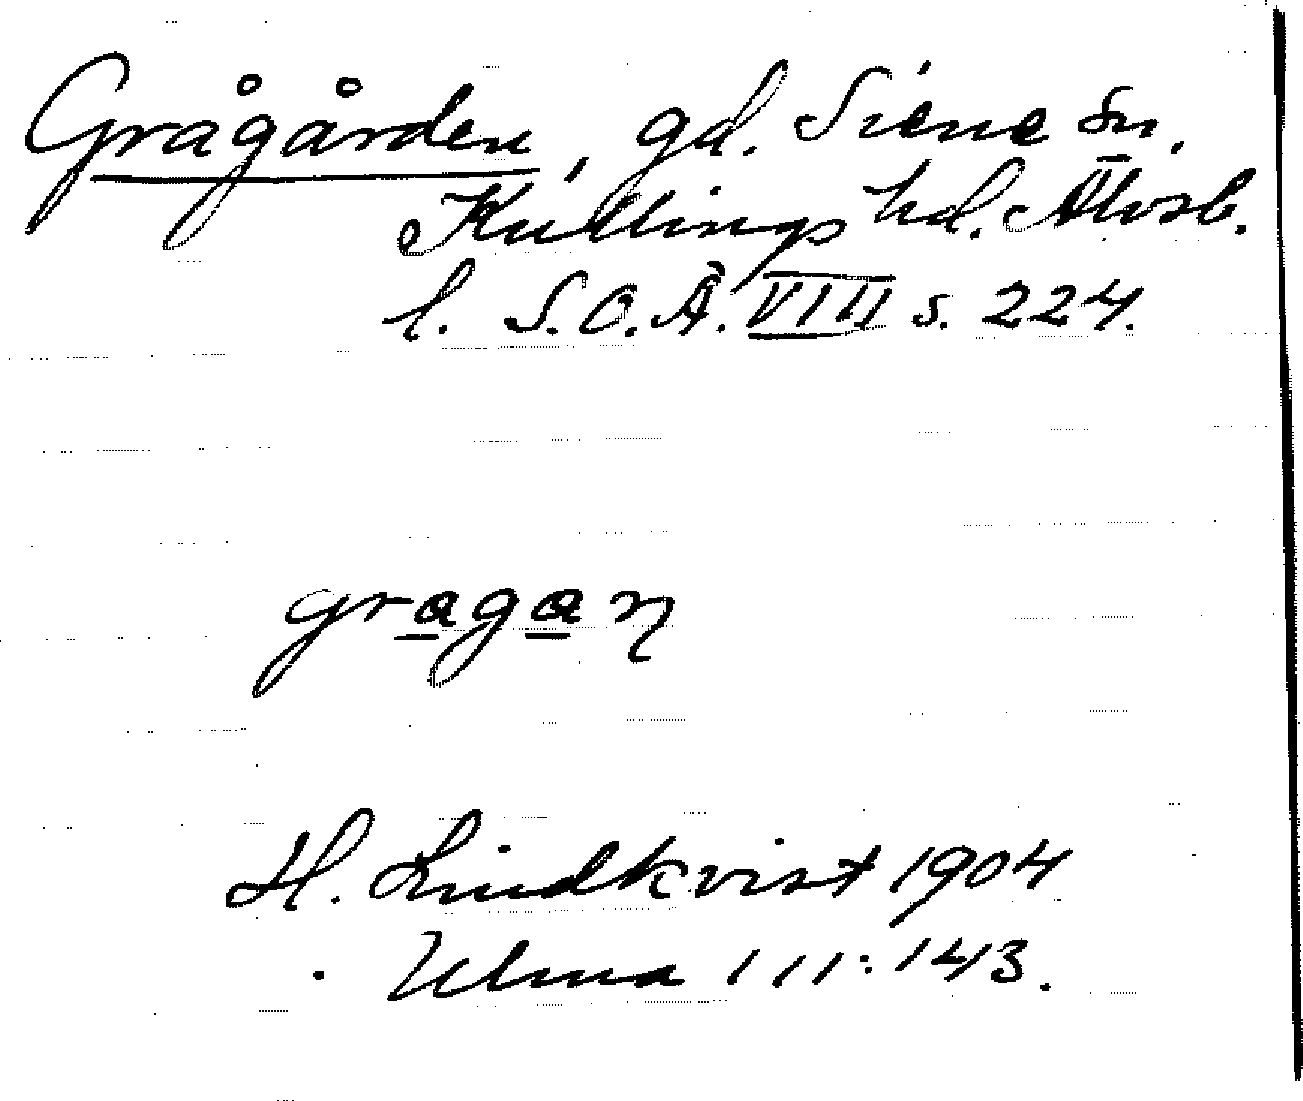 Grågården, gd. Siene sn,
Kullings hd. Älvsb.
l. S.O.Ä. VIII s. 224.
gragan
H. Lindkvist 1904
Ulma 111:143.